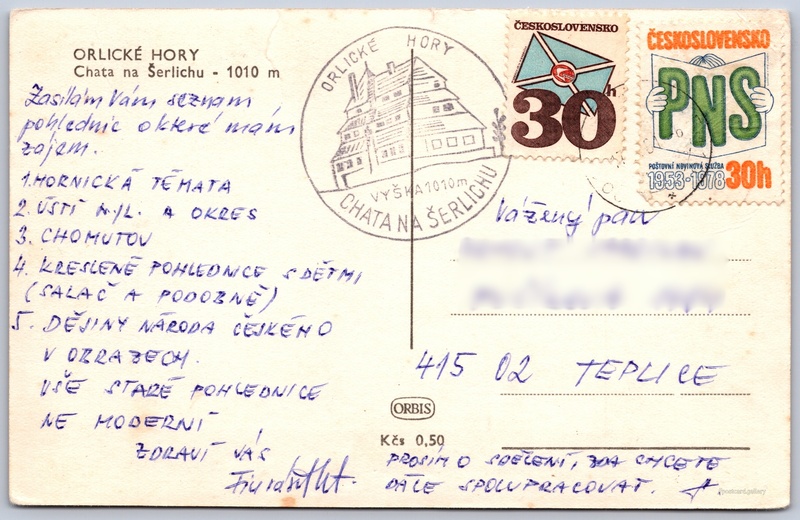 ORLICKÉ HORY
Chata na Šerlichu - 1010 m
Zasílám Vám seznam
pohlednic o které mám
zájem.
1. HORNICKÁ TÉMATA
2. ÚSTÍ N/L. A OKRES
3. CHOMUTOV
4. KRESLENÉ POHLEDNICE S DĚTMI
(SALAČ A PODOBNĚ)
5. DĚJINY NÁRODA ČESKÉHO
V OBRAZECH.
VŠE STARÉ POHLEDNICE
NE MODERNÍ
ZDRAVÍ VÁS
ORLICKÉ HORY
VÝŠKA 1010 m
CHATA NA ŠERLICHU
ČESKOSLOVENSKO
30h
ČESKOSLOVENSKO
PNS
POŠTOVNÍ NOVINOVÁ SLUŽBA
1953-1978 30h
Vážený pan
415 02 TEPLICE
ORBIS
Kčs 0,50
PROSÍM O SDĚLENÍ, ZDA CHCETE
DÁLE SPOLUPRACOVAT.